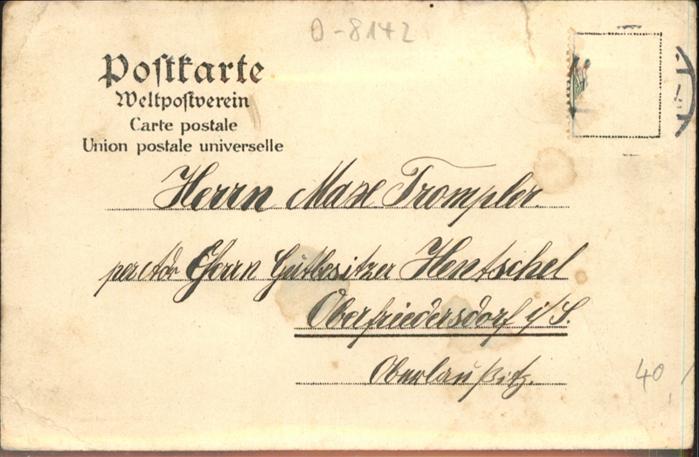 O-8142
Postkarte
Weltpostverein
Carte postale
Union postale universelle
Herrn Max Trompler.
Herrn Gutbesitzer Hentschel
Oberfriedersdorf i/S.
Oberlaußitz.
40